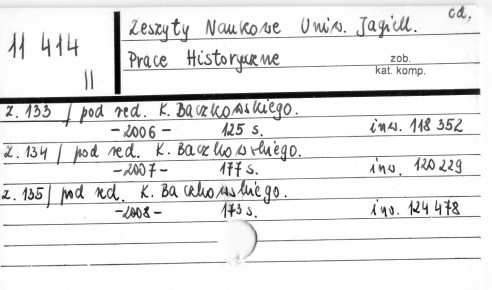 cd.
11 414
II
Zeszyty Naukowe Uniw. Jagiell.
Prace Historyczne
zob.
kat. komp.
z. 133 / pod red. K. Baczkowskiego.
-2006- 125 s. inw. 118 352
z. 134 / pod red. K. Baczkowskiego.
-2007- 177 s. inw. 120 229
z. 135 / pod red. K. Baczkowskiego.
-2008- 173 s. inw. 124 478